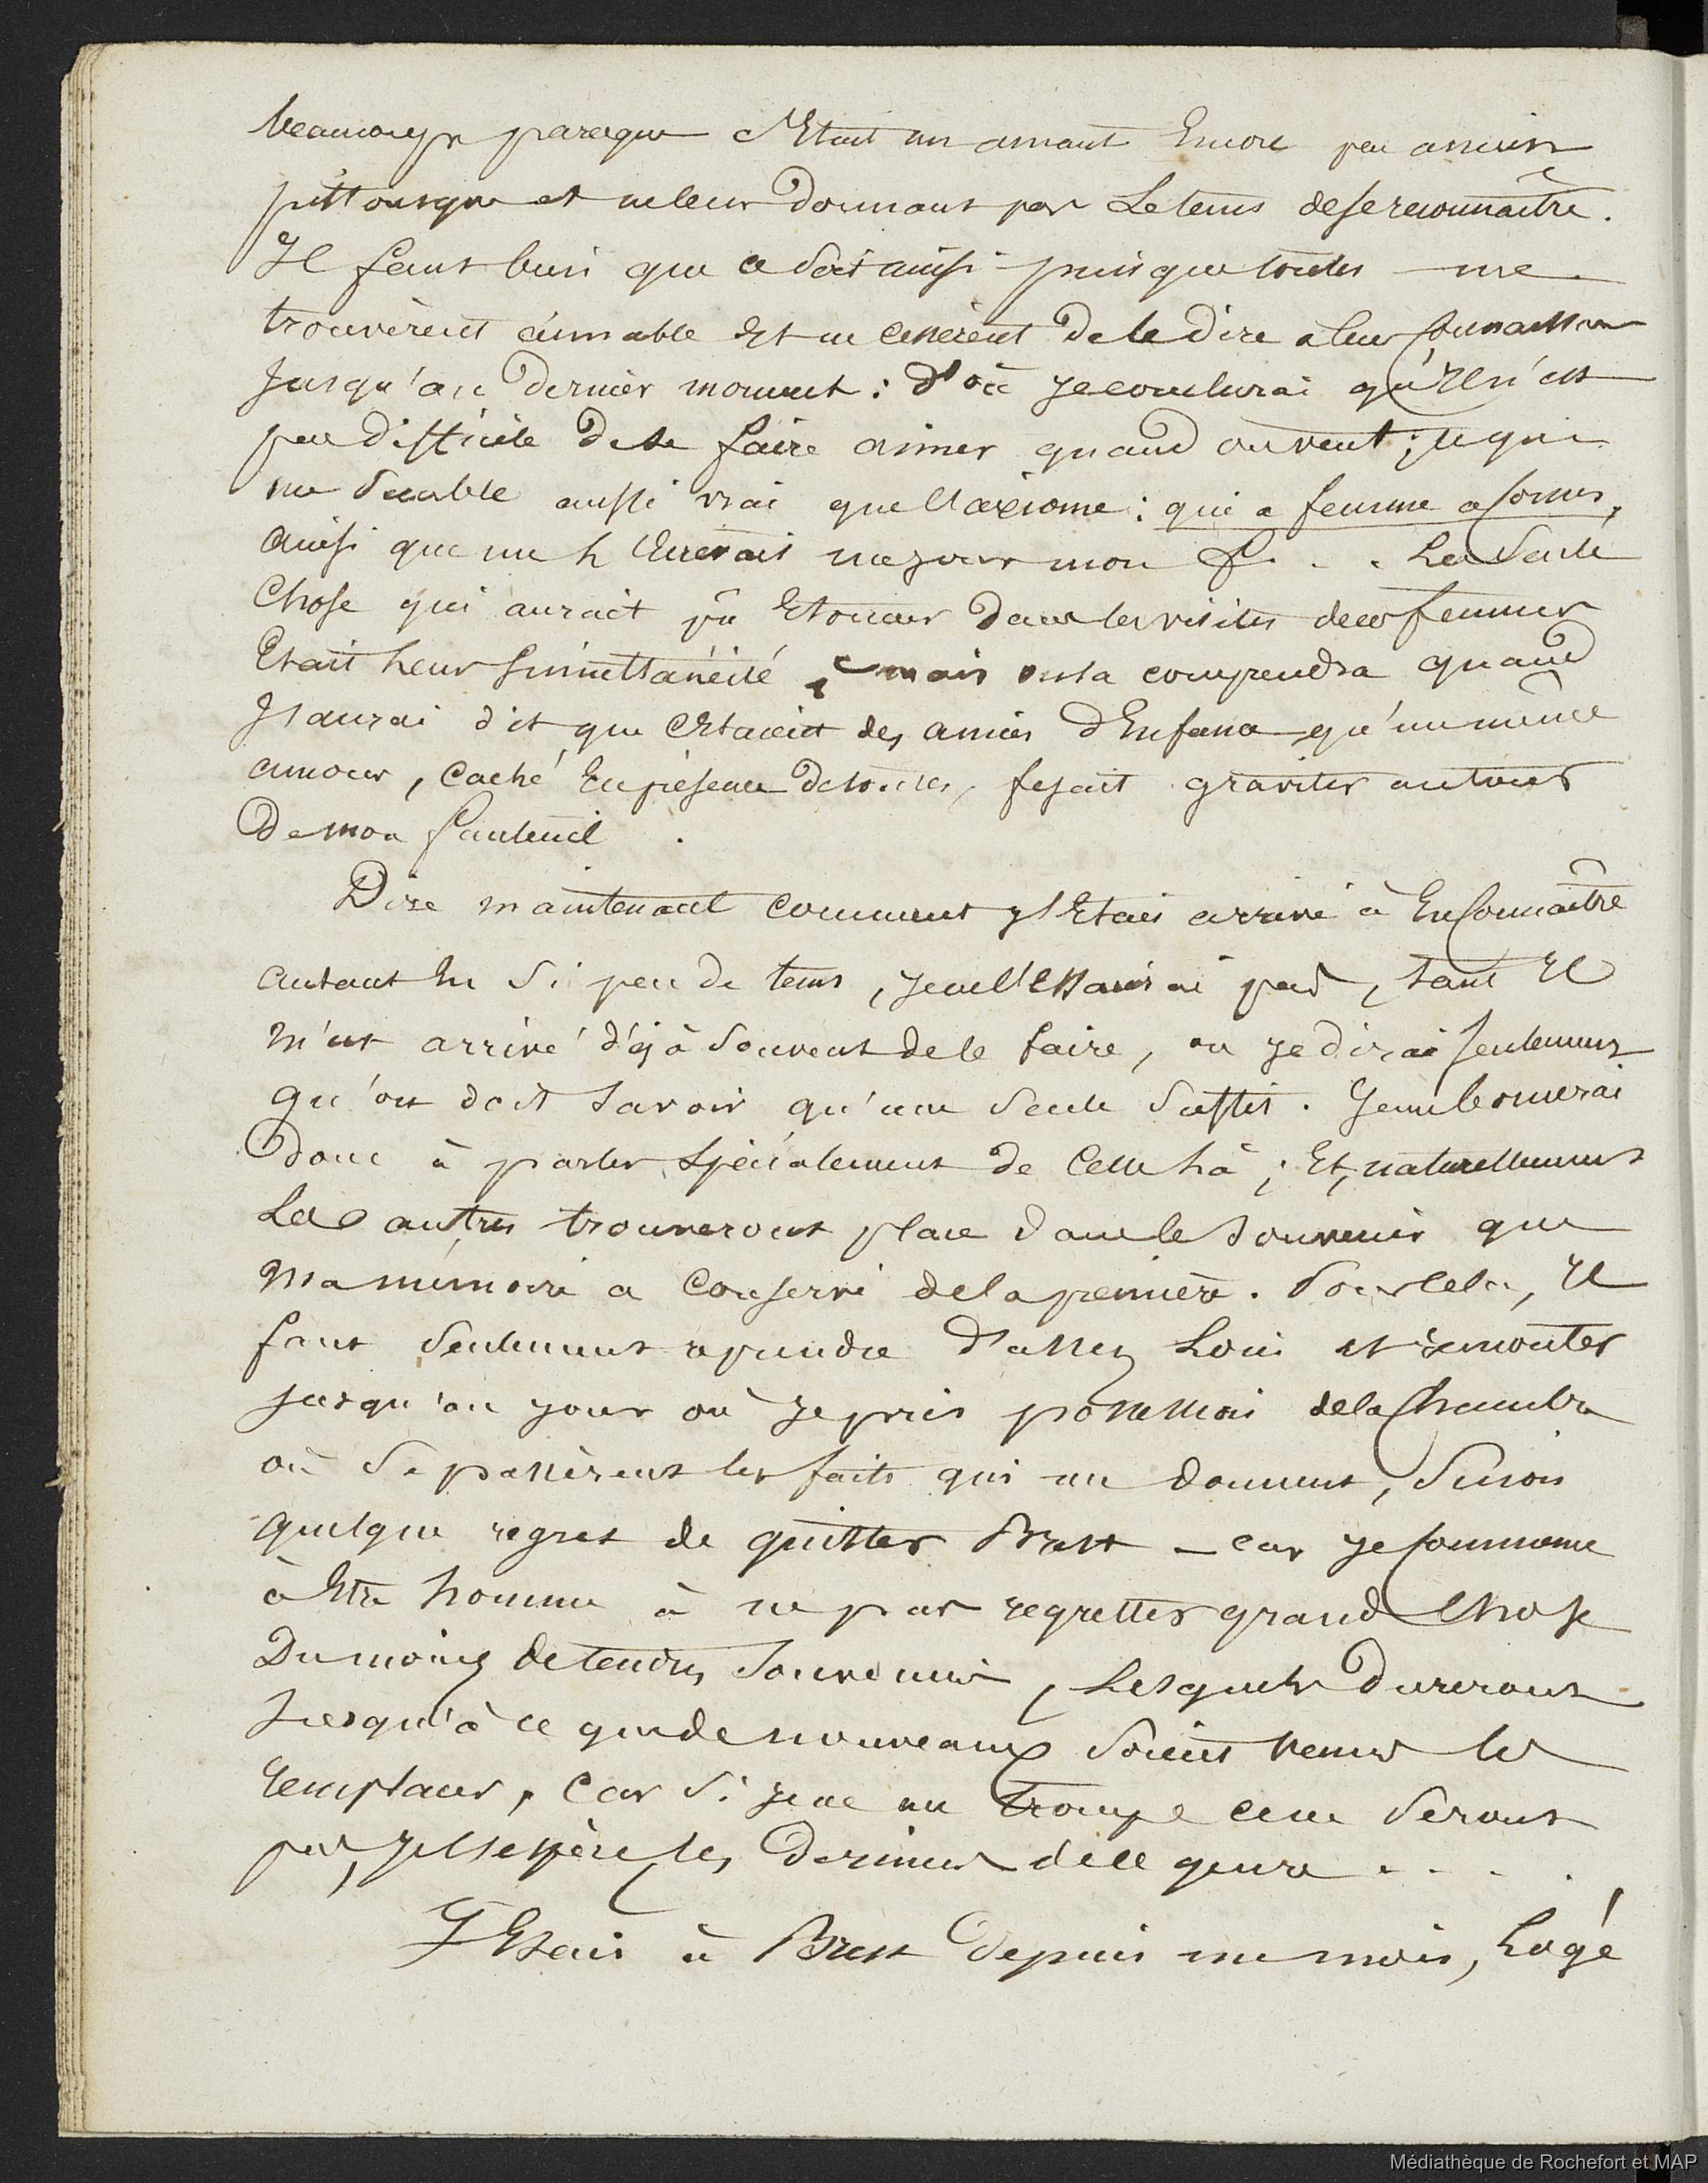 beaucoup parceque c'Etait un amant Encore peu ancien
pittoresque et ne leur donnant pas Le tems de se reconnaître.
Il faut bien que ce soit ainsi puisque toutes me
trouvèrent aimable Et ne cessèrent de le dire a leur
Jusqu'au dernier moment : d'où Je conclurai qu'Il n'est
pas difficile de se faire aimer quand on veut ; ce qui
me semble aussi vrai que l'axiome : qui a femme a cornes,
Ainsi que me un jour mon f. . . La seule
Chose qui aurait pû Etonner dans les visites de ces femmes
Etait Leur simultanéité , mais on la comprendra quand
J'aurai dit que c'Etaient des amies d'Enfance qu'un même
amour, caché En présence de toutes, fesait graviter autour
De mon fauteuil .
Dire maintenant comment J'Etais arrivé à En connaître
autant En si peu de tems, Je ne l'Essaierai pas, tant Il
m'est arrivé déjà souvent de le faire, ou Je dirai seulement
qu'on doit savoir qu'une seule suffit. Je me bornerai
donc à parler spécialement de Celle Là ; Et, naturellement
Les autres trouveront place dans le souvenir que
Ma mémoire a conservé de la première. Pour cela, Il
faut seulement reprendre d'assez Loin et remonter
Jusqu'au Jour où Je pris possession de la Chambre
où se passèrent les faits qui me donnent, sinon
quelque regret de quitter Brest – car Je commence
à Etre homme à ne pas regretter grand Chose
Du moins de tendres souvenirs, Lesquels dureront
Jusqu'à ce que de nouveaux soient venus les
remplacer, Car si Je ne me trompe ce ne seront
pas, Je l'espère, les derniers de ce genre . . . .
J'Etais à Brest depuis un mois, Logé
Médiathèque de Rochefort et MAP